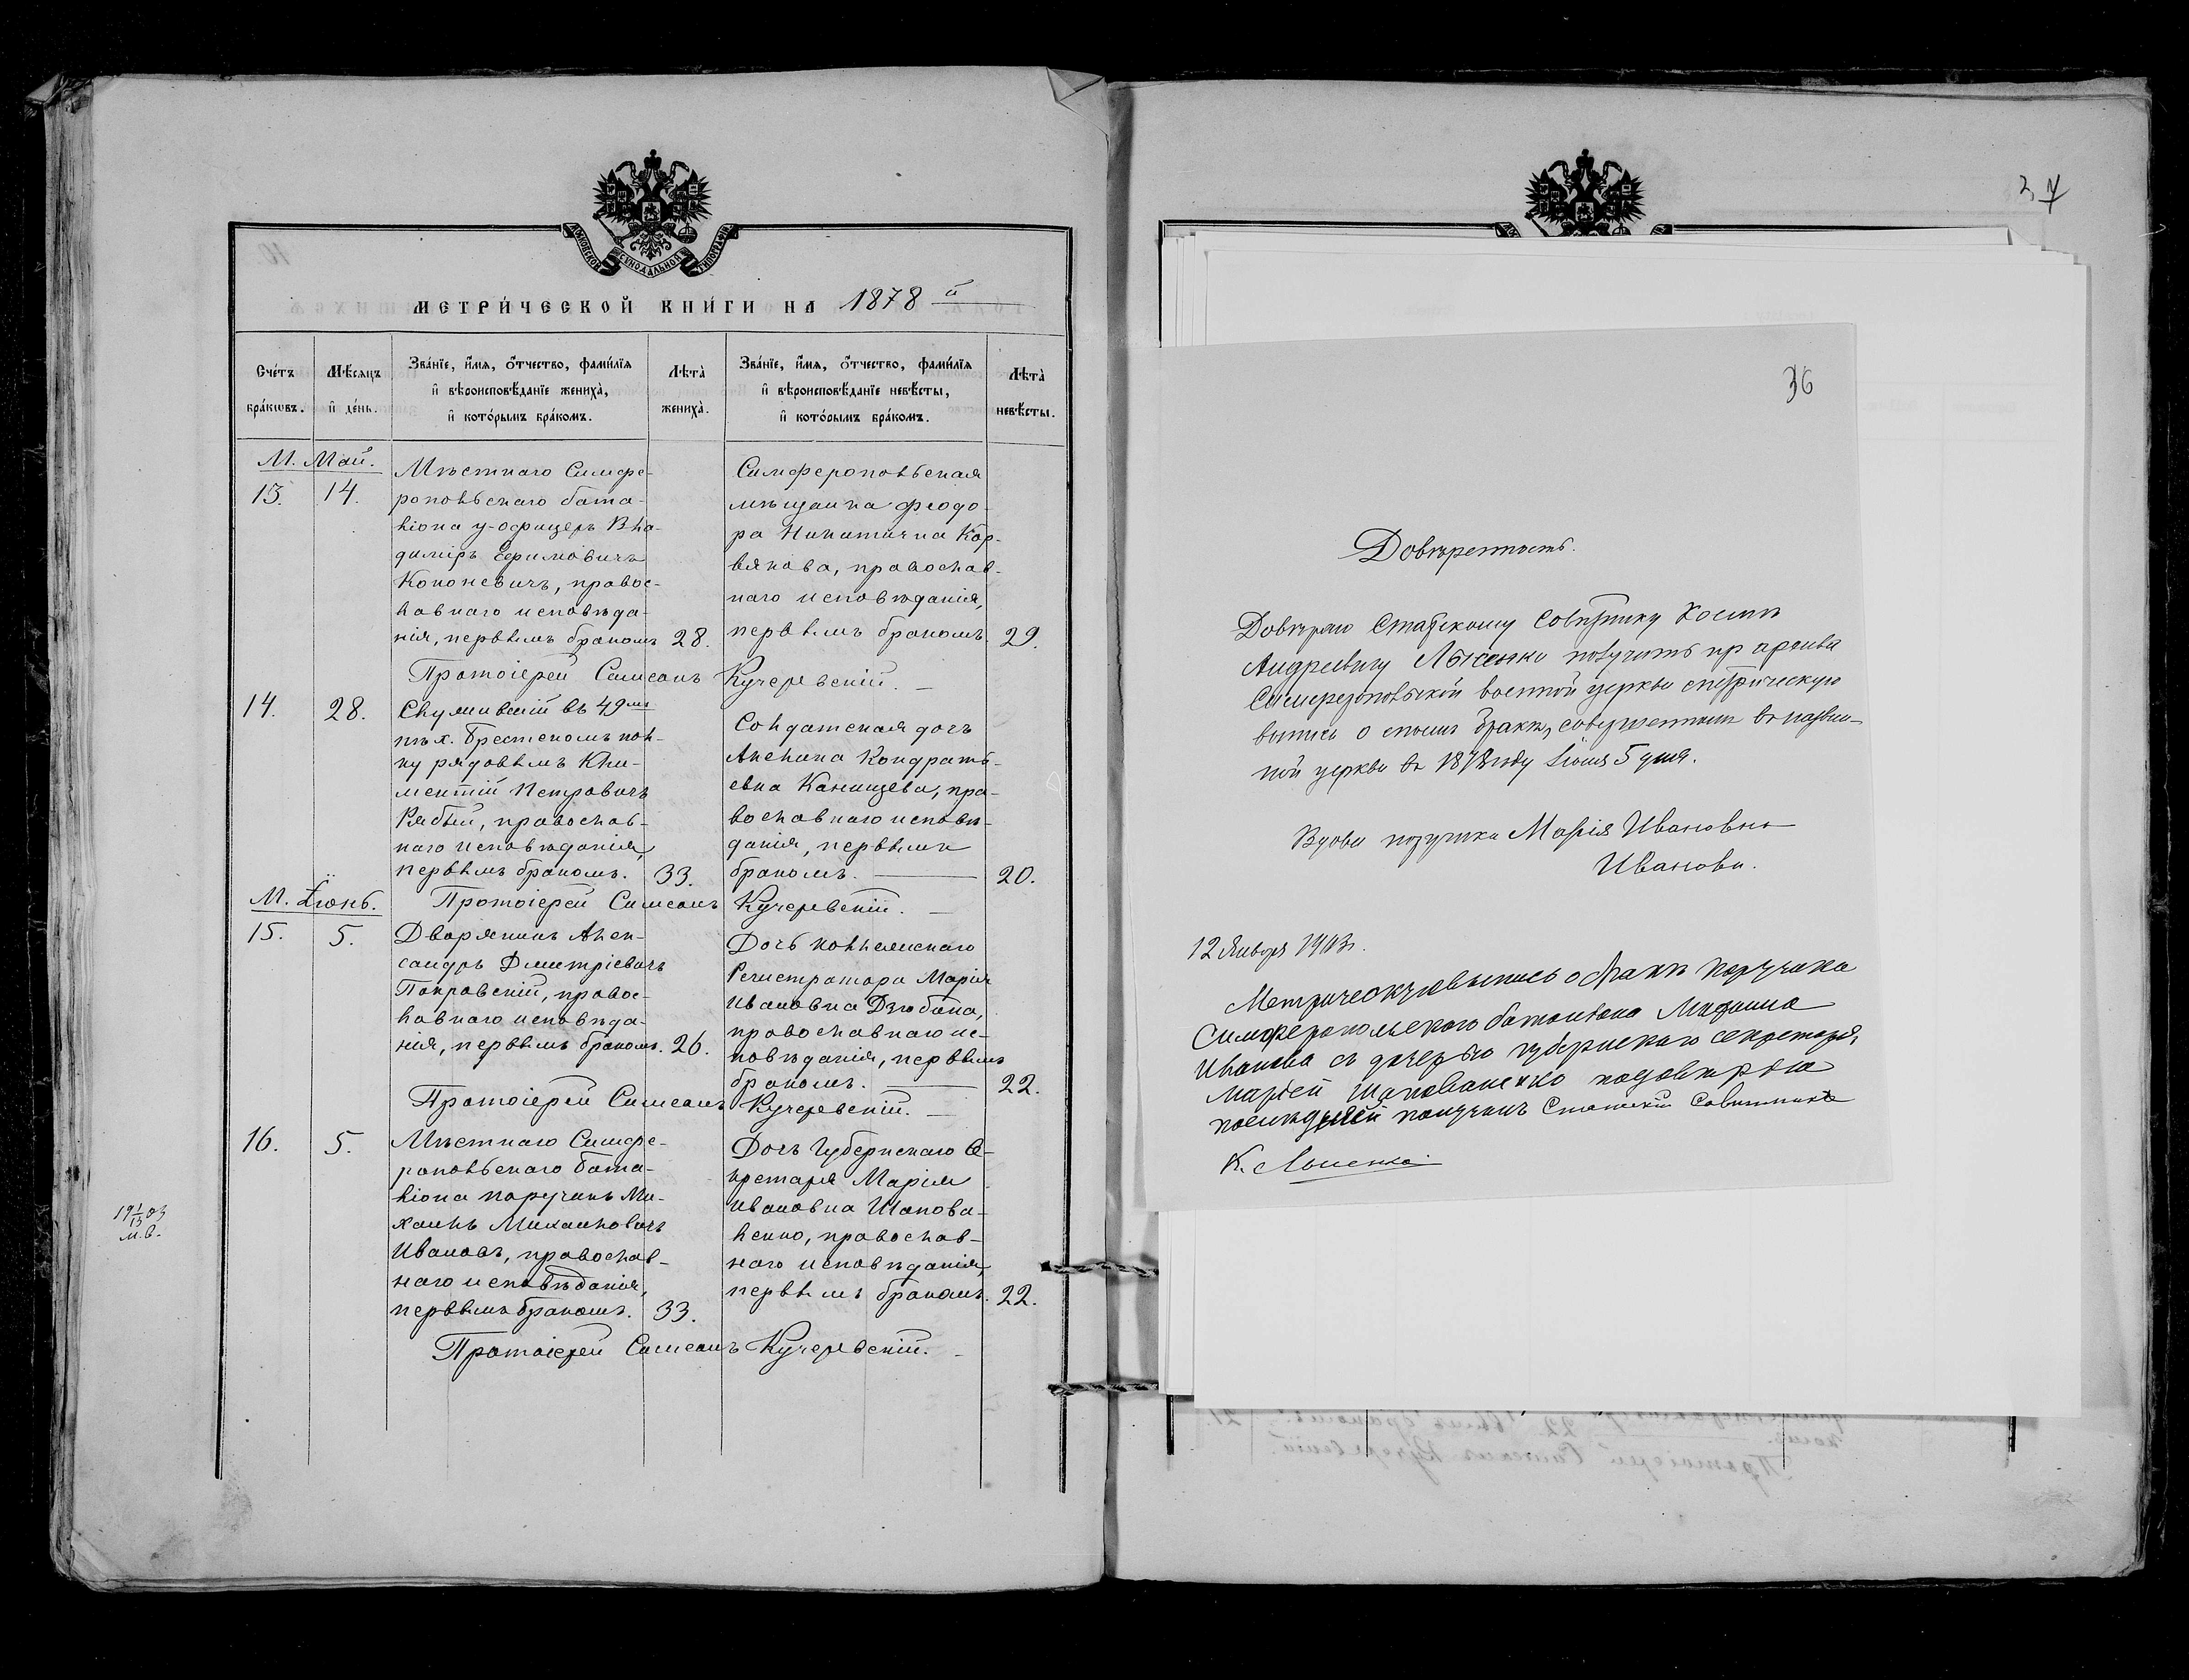 МОСКОВСКОЙ СѴНОДАЛЬНОЙ ТИПОГРАФІИ
МЕТРИ́ЧЕСКОЙ КНИ́ГИ НА 1878 й
Сче́тъ бра́кѡвъ.
Мѣ́сяцъ и҆ де́нь.
Зва́нїе, и҆́мя, ѻ҆́тчество, фами́лїя
и҆ вѣроисповѣ́данїе жениха̀,
и҆ кото́рымъ бра́комъ.
Лѣ́та жениха̀.
Зва́нїе, и҆́мя, ѻ҆́тчество, фами́лїя
и҆ вѣроисповѣ́данїе невѣ́сты,
и҆ кото́рымъ бра́комъ.
Лѣ́та невѣ́сты.
М. Май.
13. 14.
Мѣстнаго Симфе-
ропольскаго бата-
ліона у-офицеръ Вла-
диміръ Ефимовичъ
Кононевичъ, правос-
лавнаго исповѣда-
нія, первымъ бракомъ 28.
Симферопольская
мѣщанка Феодо-
ра Никитична Кор-
влякова, православ-
наго исповѣданія,
первымъ бракомъ. 29.
Протоіерей Симеонъ Кучеревскій.
14. 28.
Служившій въ 49мъ
пѣх. Брестскомъ пол-
ку рядовымъ Кли-
ментій Петровичъ
Рябый, православ-
наго исповѣданія,
первымъ бракомъ. 33.
Солдатская дочь
Акелина Кондрать-
евна Канищева, пра-
вославнаго исповѣ-
данія, первымъ
бракомъ. 20.
Протоіерей Симеонъ Кучеревскій.
М. Іюнь.
15. 5.
Дворянинъ Алек-
сандръ Дмитріевичъ
Покровскій, правос-
лавнаго исповѣда-
нія, первымъ бракомъ. 26.
Дочь коллежскаго
Регистратора Марія
Ивановна Дзюбина,
православнаго ис-
повѣданія, первымъ
бракомъ. 22.
Протоіерей Симеонъ Кучеревскій.
16. 5.
Мѣстнаго Симфе-
ропольскаго бата-
ліона поручикъ Ми-
хаилъ Михаиловичъ
Ивановъ, православ-
наго исповѣданія,
первымъ бракомъ. 33.
Дочь Губернскаго Се-
кретаря Марія
Ивановна Шапова-
ленко, православ-
наго исповѣданія,
первымъ бракомъ. 22.
Протоіерей Симеонъ Кучеревскій.
36
Довѣренность.
Довѣряю Статскому Совѣтнику Косьмѣ
Андреевичу Лысенко получить из архива
Симферопольской военной церкви метрическую
выпись о моемъ бракѣ, совершенномъ въ назван-
ной церкви въ 1878 году Іюня 5 дня.
Вдова поручика Марія Ивановна
Иванова.
12 Января 1903г.
Метрическую выпись о бракѣ поручика
Симферопольскаго баталіона Михаила
Иванова съ дочерью губернскаго секретаря,
Маріей Шаповаленко по довѣрію
послѣдней получилъ Статскій Совѣтникъ
К. Лысенко